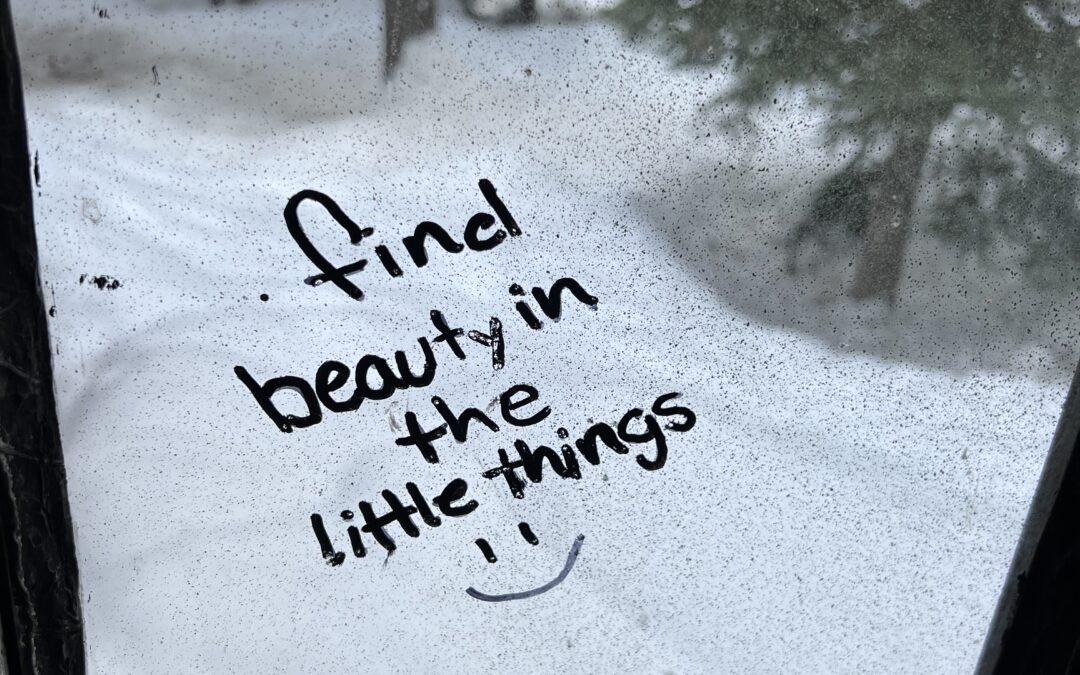 find
beauty in
the
little things